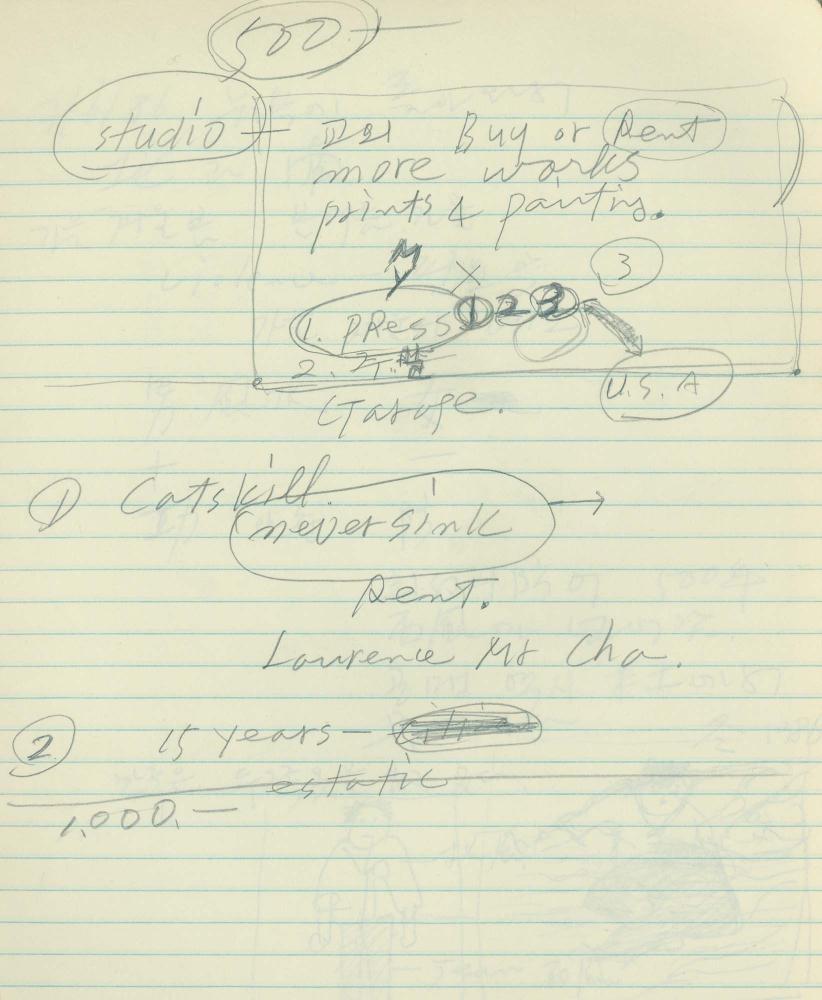 500-
studio - 교외 Buy or Rent
more works
prints & painting.
X
3
1. PRess 1 2 3
2.
U.S.A
Garage.
① Catskill.
neversink
Rent.
Laurence Mr Cha.
② 15 years -
estatic
1,000.-